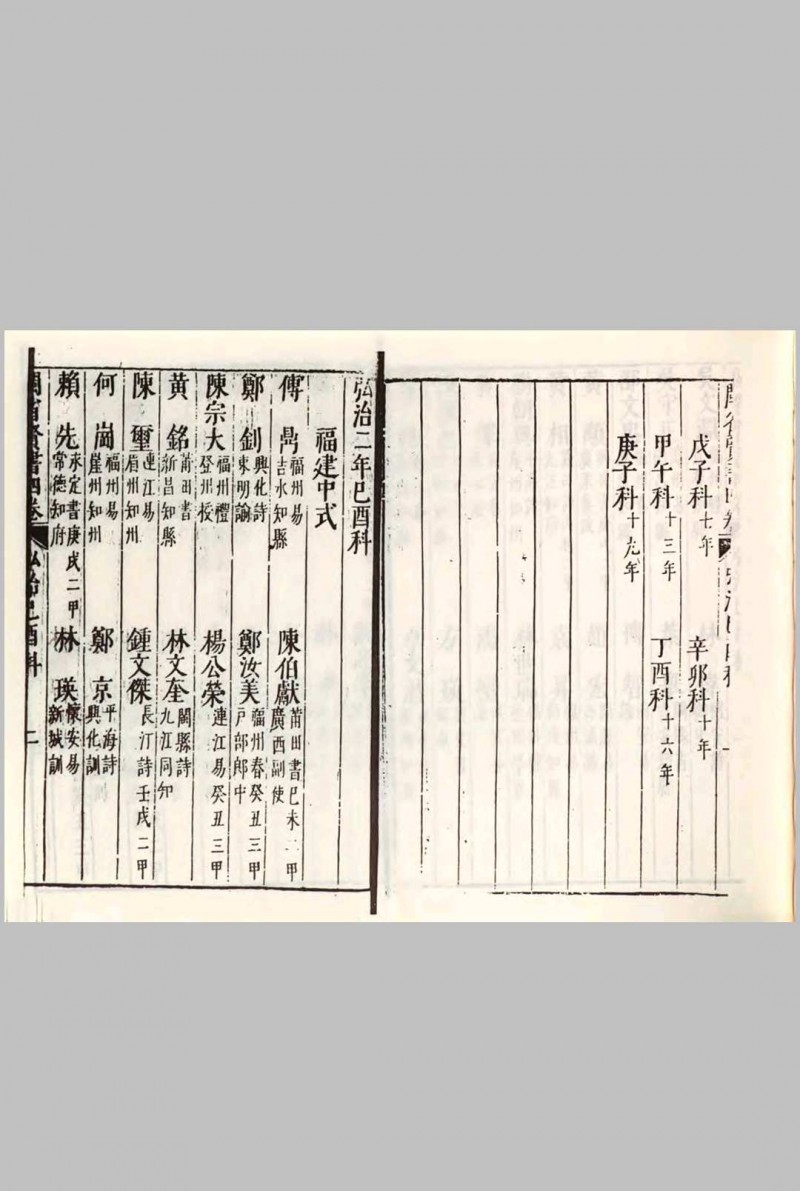 戊子科七年
辛卯科十年
甲午科十三年
丁酉科十六年
庚子科十九年
弘治二年己酉科
福建中式
傅鼎 福州易 吉水知縣
陳伯獻 莆田書己未二甲 廣西副使
鄭釗 興化詩 東明諭
鄭汝美 福州春癸丑三甲 戶部郎中
陳宗大 福州禮 登州校
楊公榮 連江易癸丑三甲
黄銘 莆田書 新昌知縣
林文奎 閩縣詩 九江同知
陳璽 連江易 眉州知州
鍾文傑 長汀詩壬戌二甲
何崗 福州易 崖州知州
鄭京 平海詩 興化訓
賴先 永定書庚戌二甲 常德知府
林瑛 懷安易 新城訓
閩省賢書四卷 弘治己酉科 二